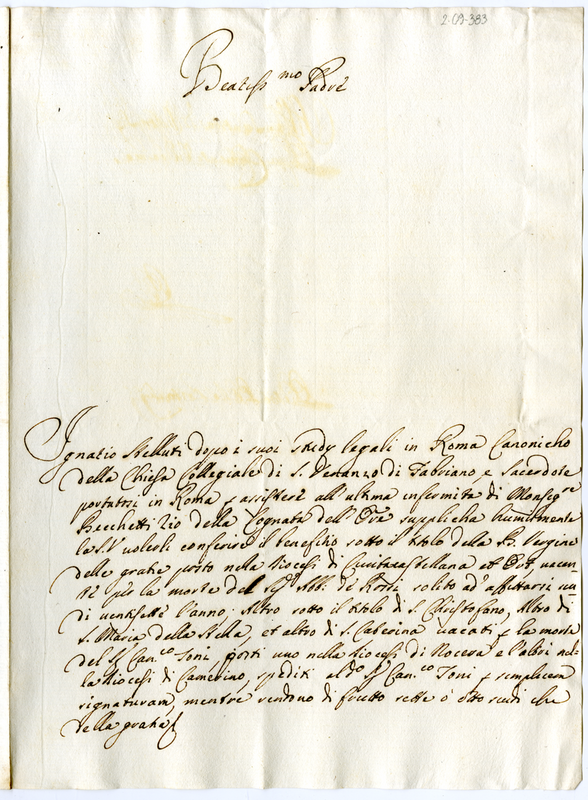 2-09-383
Beatiss.mo Padre
Ignazio Stelluti dopo i suoi Study legali in Roma Canonicho
della Chiesa Collegiale di S. Venanzo di Fabriano, e Sacerdote
portatosi in Roma p assistere all'ultima infermità di Monsig.re
Bacchetti Zio della Cognata dell'Ore supplicha humilmente
la S.V volersli conferire il benefitio sotto il titolo della B. Vergine
delle gratie posto nella diocesi di Civita Castellana
per la morte del Sig.r Abb. de Rossi solito ad' affittarsi scu-
di ventisette l'anno. Altro sotto il titolo di S. Christofano, Altro di
S. Maria della Stella, et altro di S. Caterina vacati p la morte
del S.r Can.co Toni, posti uno nella diocesi di Nocera e l'altri nel-
la diocesi di Camerino, spediti al d.o S.r Can.co Toni p simplicem
signaturam, mentre rendono di frutto sette ò otto scudi che
della gratia